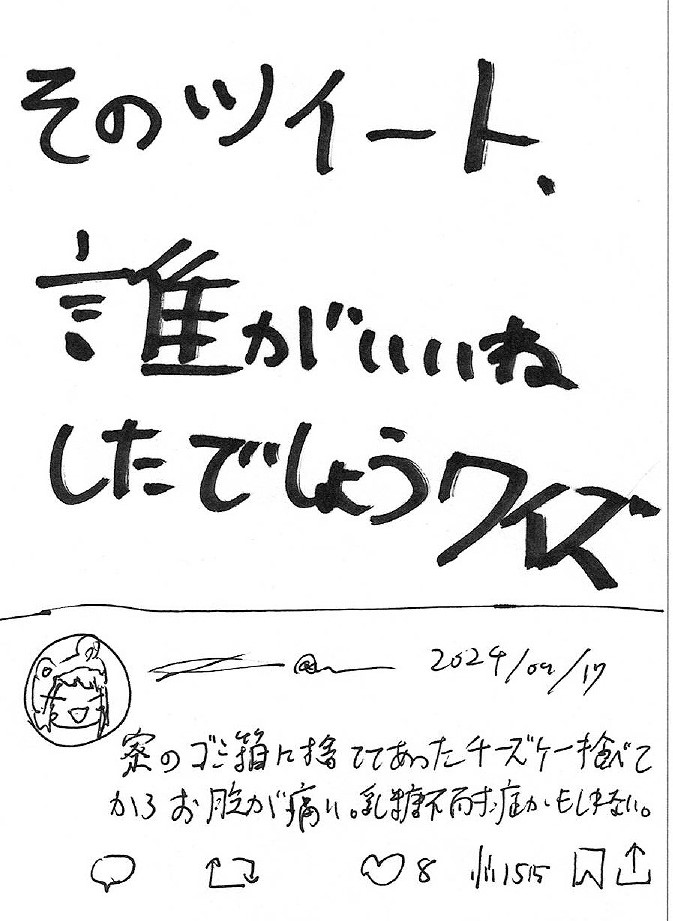 そのツイート、
誰がいいね
したでしょうクイズ
2024/09/17
寮のゴミ箱に捨ててあったチーズケーキ食べて
からお腹が痛い。乳糖不耐症かもしれない。
8
1515